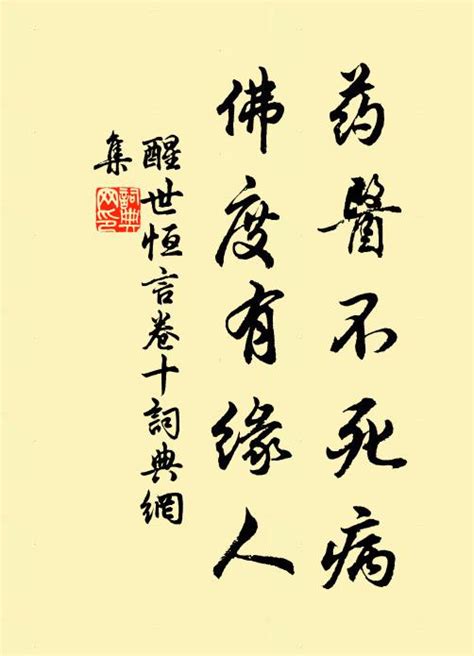 药醫不死病
佛度有缘人
醒世恒言卷十詞典網
集
詞典网印